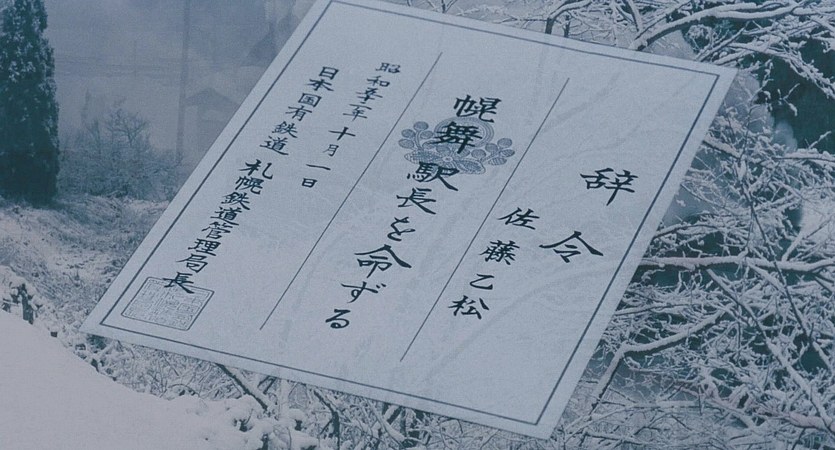 辞令
佐藤乙松
幌舞駅長を命ずる
昭和五十一年十月一日
日本国有鉄道
札幌鉄道管理局長